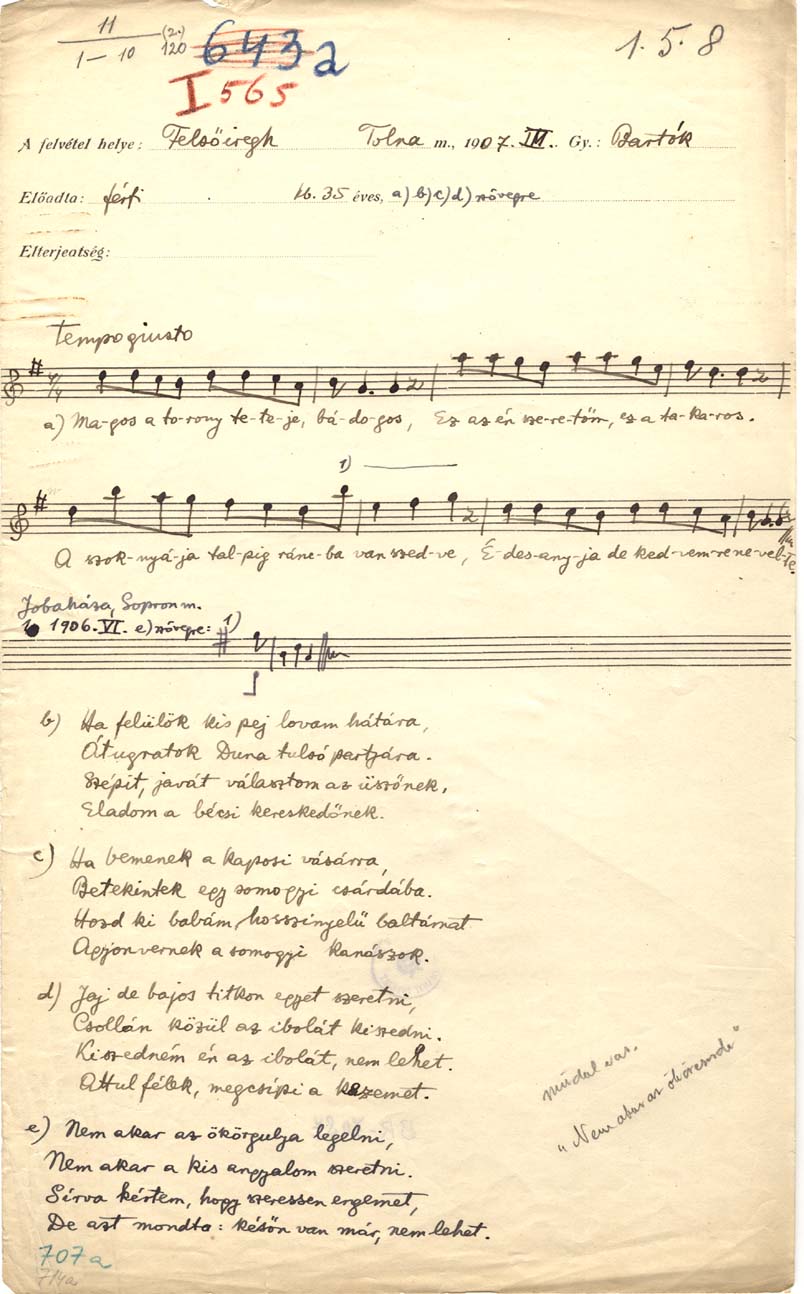 11
1–10 (2.) 120 643a 1.5.8
I 565
A felvétel helye: Felsőiregh Tolna m., 1907. IV. Gy.: Bartók
Előadta: férfi kb. 35 éves, a) b) c) d) szövegre
Elterjedtség:
Tempo giusto
4/4
a) Ma-gos a to-rony te-te-je, bá-do-gos, Ez az én sze-re-tőm, ez a ta-ka-ros.
1)
A szok-nyá-ja tal-pig ránc-ba van szed-ve, É-des-any-ja de ked-vem-re ne-vel-te.
Jobaháza, Sopron m.
1906. VI. e) szövegre: 1)
b) Ha felülök kis pej lovam hátára,
Átugratok Duna tulsó partjára.
Szépit, javát választom az üszőnek,
Eladom a bécsi kereskedőnek.
c) Ha bemenek a kaposi vásárra,
Betekintek egy somogyi csárdába.
Hozd ki babám, hosszinyelű baltámat
Agyonvernek a somogyi kanászok.
d) Jaj de bajos titkon egyet szeretni,
Csollán közül az ibolát kiszedni.
Kiszedném én az ibolát, nem lehet.
Attul félek, megcsípi a kezemet.
e) Nem akar az ökörgulya legelni,
Nem akar a kis angyalom szeretni.
Sírva kértem, hogy szeressen engemet,
De azt mondta: későn van már, nem lehet.
műdal var.
"Nem akar az ökörcsorda"
707a
714a